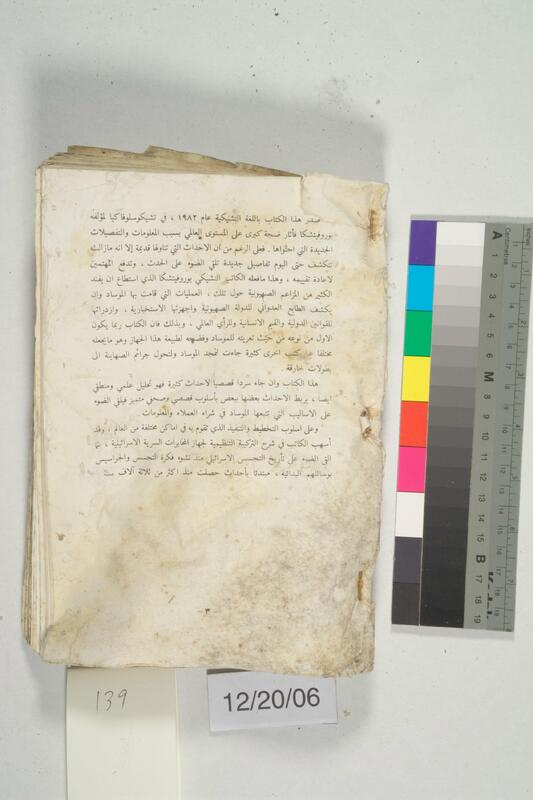 صدر هذا الكتاب باللغة التشيكية عام ١٩٨٢ ، في تشيكوسلوفاكيا لمؤلفه
بوروفيتشكا فأثار ضجة كبرى على المستوى العالمي بسبب المعلومات والتفصيلات
الجديدة التي احتواها . فعلى الرغم من ان الاحداث التي تناولها قديمة إلا انه مازالت
تتكشف حتى اليوم تفاصيل جديدة تلقي الضوء على الحدث ، وتدفع المهتمين
لاعادة تقييمه ، وهذا مافعله الكاتب التشيكي بوروفيتشكا الذي استطاع ان يفند
الكثير من المزاعم الصهيونية حول تلك ، العمليات التي قامت بها الموساد وان
يكشف الطابع العدواني للدولة الصهيونية واجهزتها الاستخبارية ، وازدرائها
للقوانين الدولية والقيم الانسانية وللرأي العالمي ، وبذلك فان الكتاب ربما يكون
الاول من نوعه من حيث تعريته للموساد وفضحه لطبيعة هذا الجهاز وهو مايجعله
مختلفا عن كتب اخرى كثيرة جاءت لتمجد الموساد ولتحول جرائم الصهاينة الى
بطولات خارقة .
هذا الكتاب وان جاء سردا قصصيا لاحداث كثيرة فهو تحليل علمي ومنطقي
ايضا ، يربط الاحداث بعضها ببعض بأسلوب قصصي وصحفي متميز فيلقي الضوء
على الاساليب التي تتبعها الموساد في شراء العملاء والمعلومات
وعلى اسلوب التخطيط والتنفيذ الذي تقوم به في اماكن مختلفة من العالم ، وقد
أسهب الكاتب في شرح التركيبة التنظيمية لجهاز المخابرات السرية الاسرائيلية ،
القى الضوء على تأريخ التجسس الاسرائيلي منذ نشوء فكرة التجسس والجواسيس
بوسائلهم البدائية ، مبتدئا بأحداث حصلت منذ اكثر من ثلاثة آلاف سنة
٣
139
12/20/06
inches
Centimetres
1
2
3
4
5
6
7
8
9
10
11
12
13
14
15
16
17
18
19
A
M
B